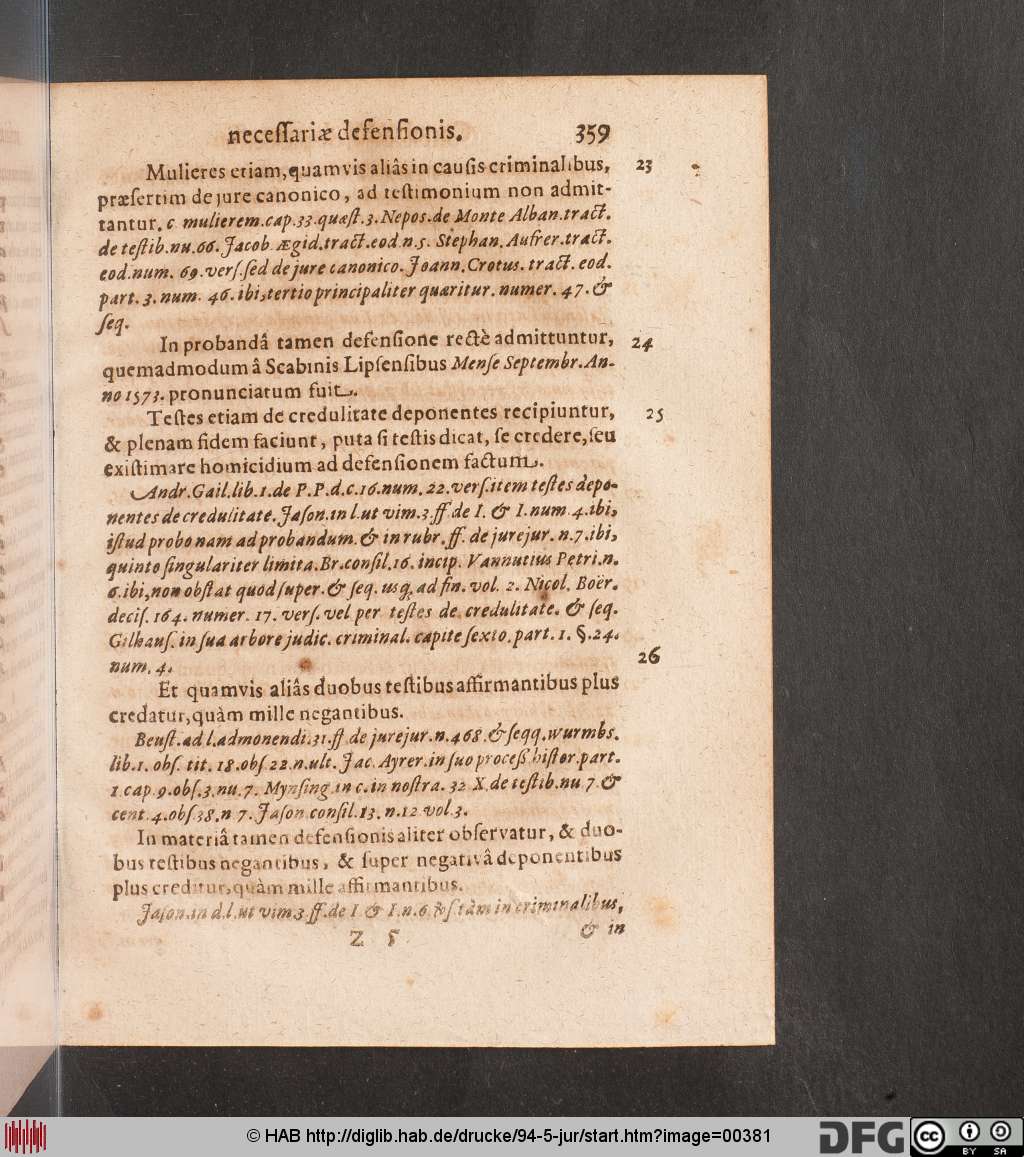 necessariæ defensionis. 359
Mulieres etiam, quamvis aliâs in causis criminalibus, 23
præsertim de jure canonico, ad testimonium non admit-
tantur. c. mulierem. cap. 33. quæst. 3. Nepos. de Monte Alban. tract.
de testib. nu. 66. Jacob. Ægid. tract. eod. n. 5. Stephan. Aufrer. tract.
eod. num. 69. vers. sed de jure canonico. Joann. Crotus. tract. eod.
part. 3. num. 46. ibi, tertio principaliter quæritur. numer. 47. &
seq.
In probandâ tamen defensione rectè admittuntur, 24
quemadmodum â Scabinis Lipsensibus Mense Septembr. An-
no 1573. pronunciatum fuit.
Testes etiam de credulitate deponentes recipiuntur, 25
& plenam fidem faciunt, puta si testis dicat, se credere, seu
existimare homicidium ad defensionem factum.
Andr. Gail. lib. 1. de P. P. d. c. 16. num. 22. vers. item testes depo-
nentes de credulitate. Jason. in l. ut vim. 3. ff. de I. & I. num. 4. ibi,
istud probo nam ad probandum. & in rubr. ff. de jurejur. n. 7. ibi,
quinto singulariter limita. Br. consil. 16. incip. Vannutius Petri. n.
6. ibi, non obstat quod super. & seq. usq; ad fin. vol. 2. Nicol. Boër.
decis. 164. numer. 17. vers. vel per testes de credulitate. & seq.
Gilhaus. in sua arbore judic. criminal. capite sexto. part. 1. §. 24.
num. 4.
26
Et quamvis aliâs duobus testibus affirmantibus plus
credatur, quàm mille negantibus.
Beust. ad l. admonendi. 31. ff. de jurejur. n. 468. & seqq. Wurmbs.
lib. 1. obs. tit. 18. obs. 22. n. ult. Jac. Ayrer. in suo process. histor. part.
1. cap. 9. obs. 3. nu. 7. Mynsing. in c. in nostra. 32. X. de testib. nu. 7. &
cent. 4. obs. 38. n. 7. Jason. consil. 13. n. 12. vol. 3.
In materiâ tamen defensionis aliter observatur, & duo-
bus testibus negantibus, & super negativâ deponentibus
plus creditur, quàm mille affirmantibus.
Jason. in d. l. ut vim. 3. ff. de I. & I. n. 6. in criminalibus,
Z 5 & in
© HAB http://diglib.hab.de/drucke/94-5-jur/start.htm?image=00381
DFG cc BY SA